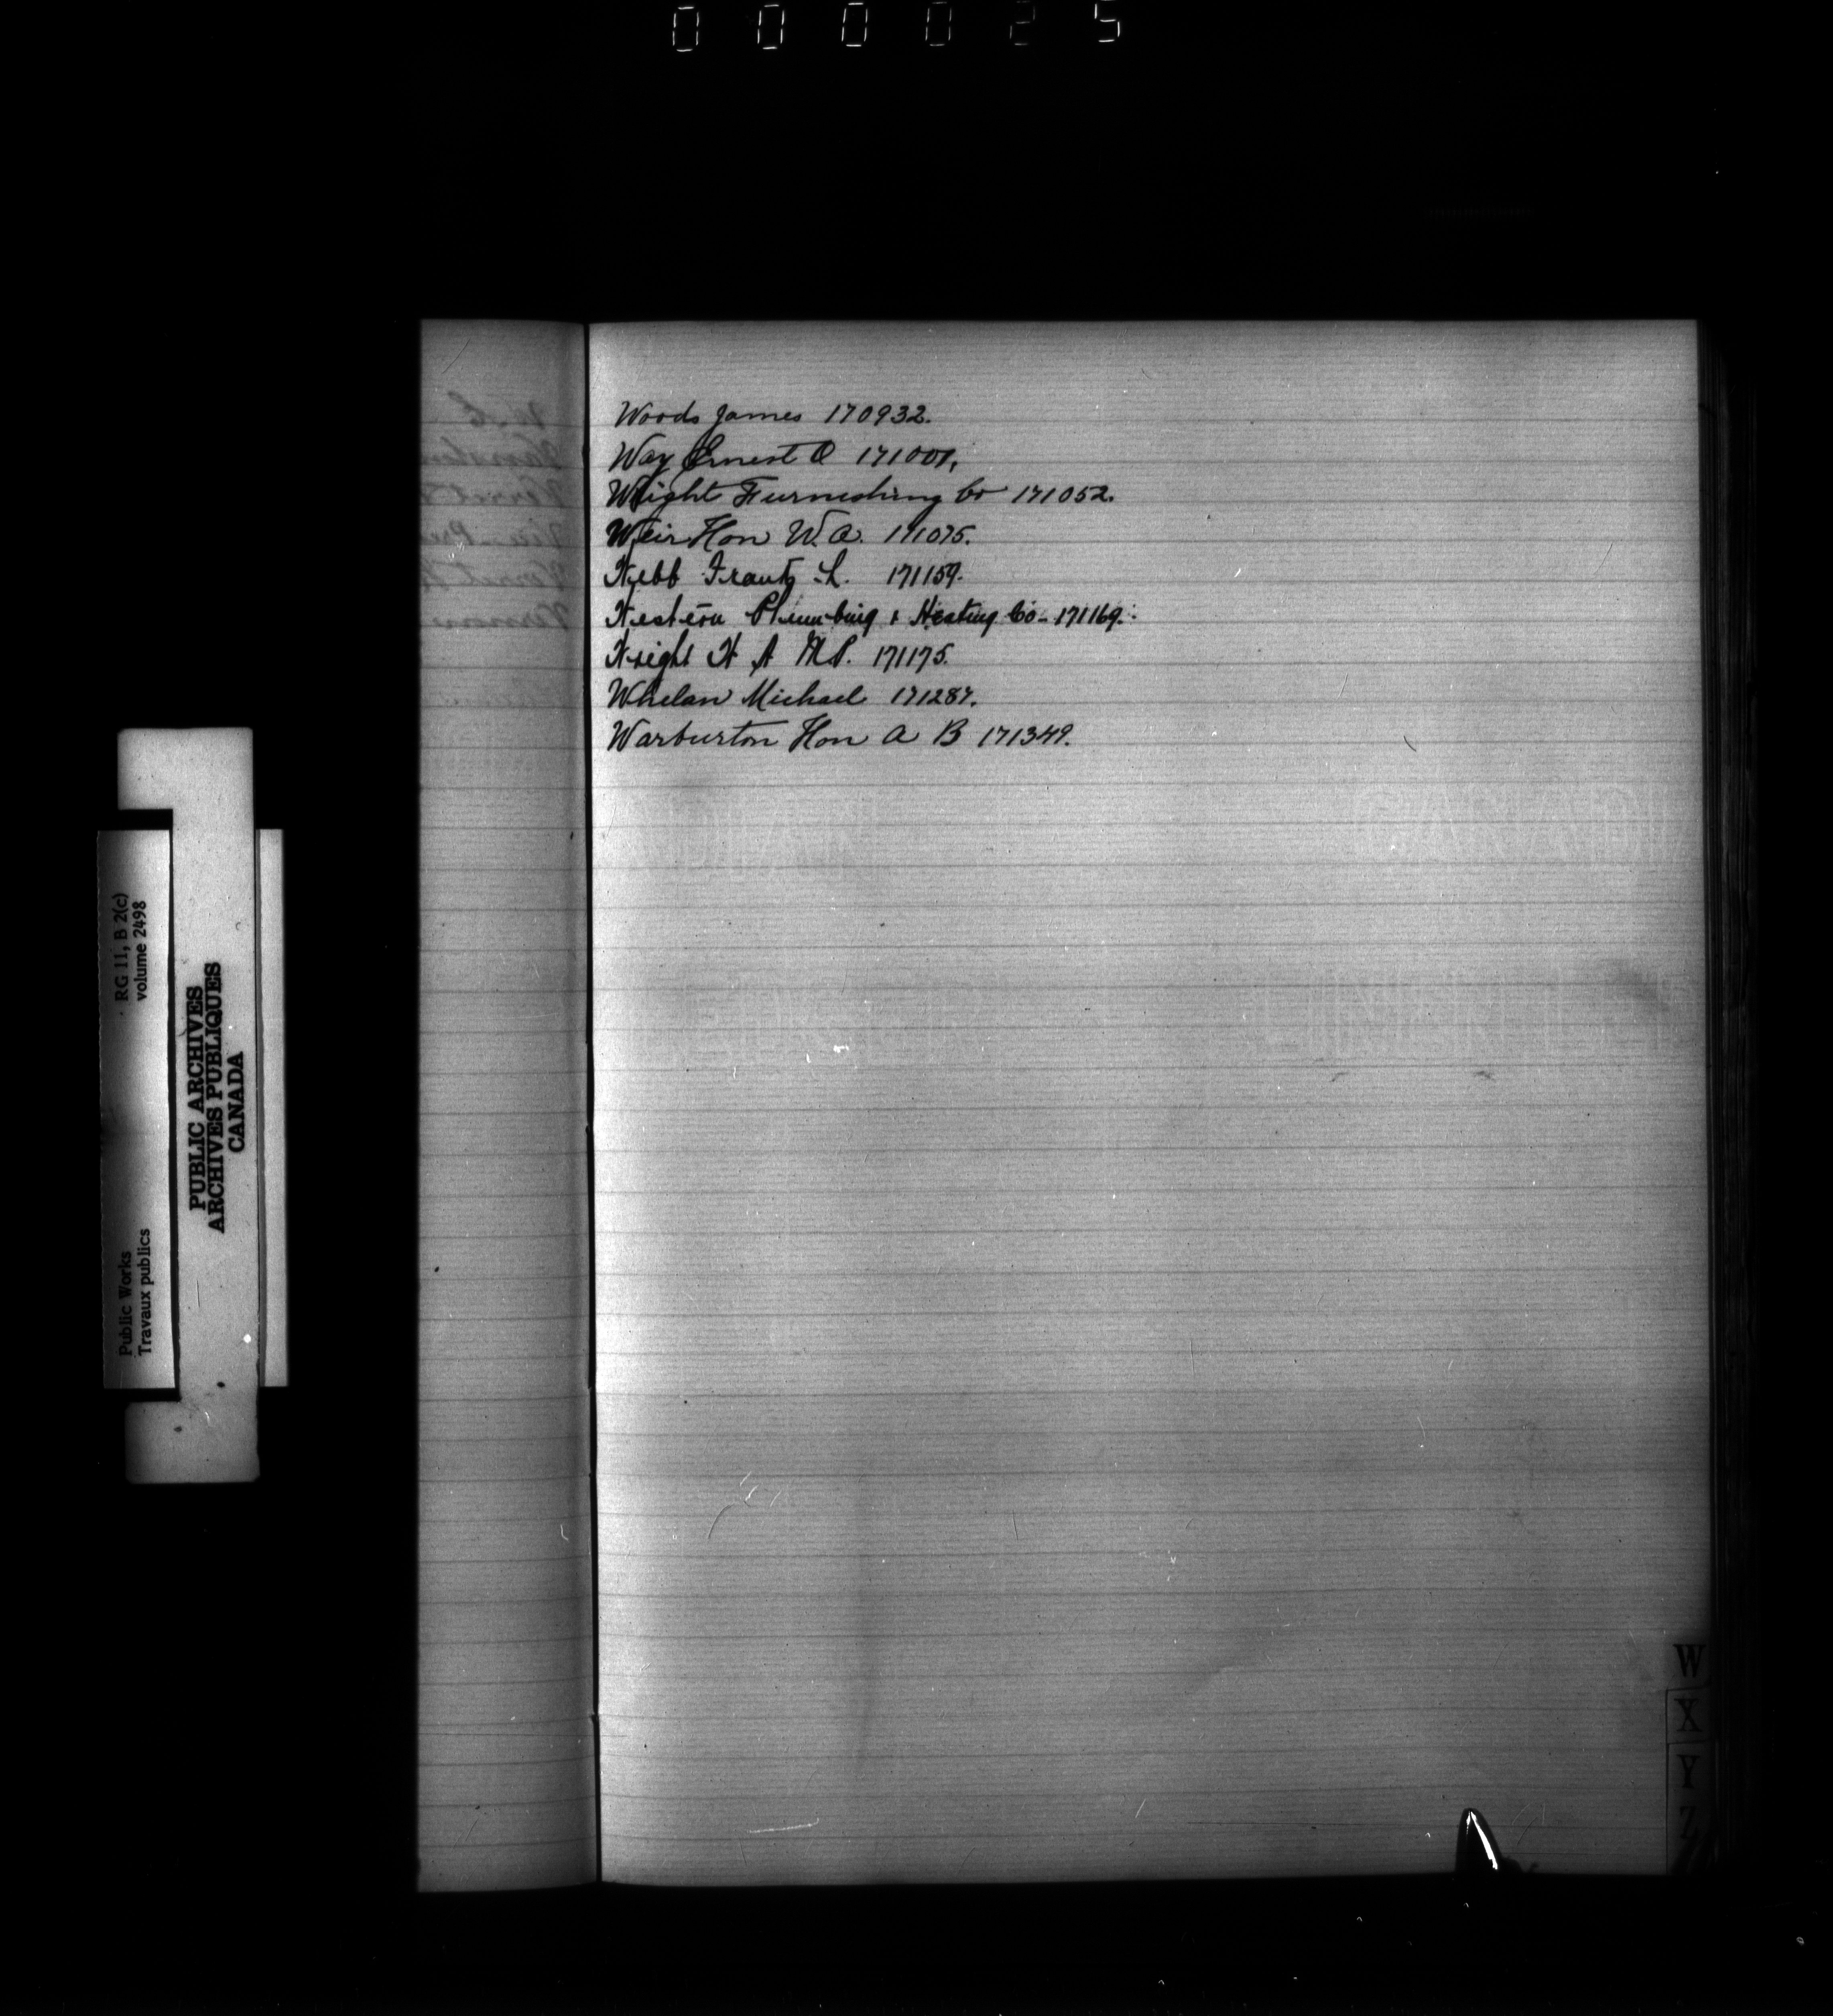 000025
Woods James 170932.
Way Ernest O 171001,
Wright Furnishing Co 171052.
Weir Hon W. A. 171075.
Webb Frank L. 171159.
Western Plumbing & Heating Co- 171169.
Wright W A M.P. 171175.
Whelan Michael 171287.
Warburton Hon A B 171349.
RG 11, B 2(c)
volume 2498
PUBLIC ARCHIVES
ARCHIVES PUBLIQUES
CANADA
Public Works
Travaux publics
W
X
Y
Z